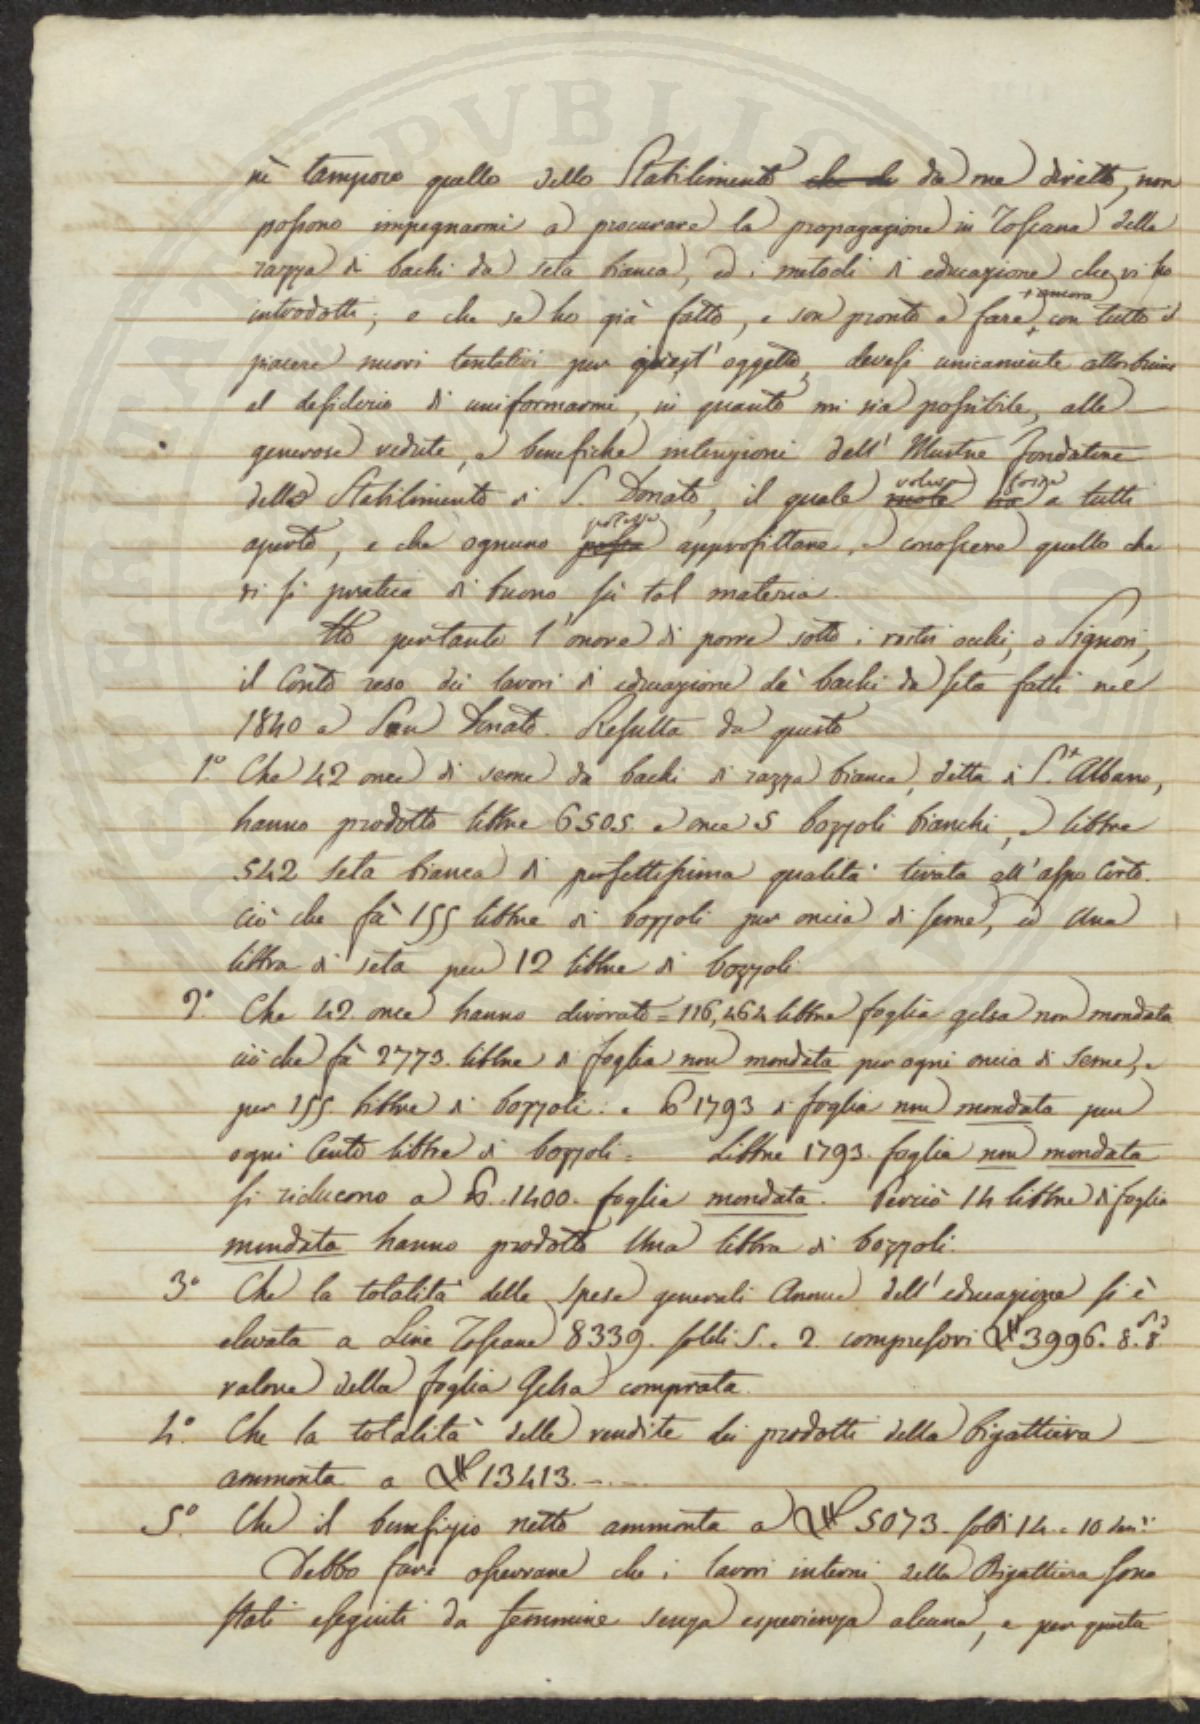 nè tampoco quello dello Stabilimento che da da me diretto, non
possono impegnarmi a procurare la propagazione in Toscana della
razza di bachi da seta bianca, ed i metodi di educazione che vi ho
introdotti; e che se ho già fatto, e son pronto a fare ancora con tutto il
piacere nuovi tentativi per quest'oggetto, devesi unicamente attribuire
al desiderio di uniformarmi, in quanto mi sia possibile, alle
generose vedute, e benefiche intenzioni dell'Illustre fondatore
dello Stabilimento di S. Donato, il quale vuole volle ha fosse a tutti
aperto, e che ognuno possa potesse approfittare, e conoscere quello che
vi si pratica di buono su tal materia.
Ho pertanto l'onore di porre sotto i vostri occhi, o Signori,
il Conto reso dei lavori di educazione de' bachi da seta fatti nel
1840 a San Donato. Resulta da questo
1.º Che 42 once di seme da bachi di razza bianca, detta di S.t Albano,
hanno prodotto libbre 6505. e once 5 bozzoli bianchi, e libbre
542 seta bianca di perfettissima qualità tirata all'aspo corto.
ciò che fà 155 libbre di bozzoli per oncia di seme, ed Una
libbra di seta per 12 libbre di bozzoli.
2.º Che 42 once hanno divorato = 116,464 libbre foglia gelsa non mondata
ciò che fà 2773. libbre di foglia non mondata per ogni oncia di seme, e
per 155 libbre di bozzoli: e lb 1793 di foglia non mondata per
ogni Cento libbre di bozzoli = Libbre 1793. foglia non mondata
si riducono a lb. 1400. foglia mondata. Perciò 14 libbre di foglia
mondata hanno prodotto Una libbra di bozzoli.
3º Che la totalità delle spese generali Annue dell'educazione si è
elevata a Lire Toscane 8339. soldi 5. e 2. compresovi £ 3996. 8. 8.
valore della foglia Gelsa comprata.
4.º Che la totalità delle vendite dei prodotti della Bigattiera
ammonta a £ 13413. -. -.
5.º Che il benefizio netto ammonta a £ 5073. soldi 14. e 10 den.ri
Debbo fare osservare che i lavori interni della Bigattiera sono
stati eseguiti da femmine senza esperienza alcuna, e per questa